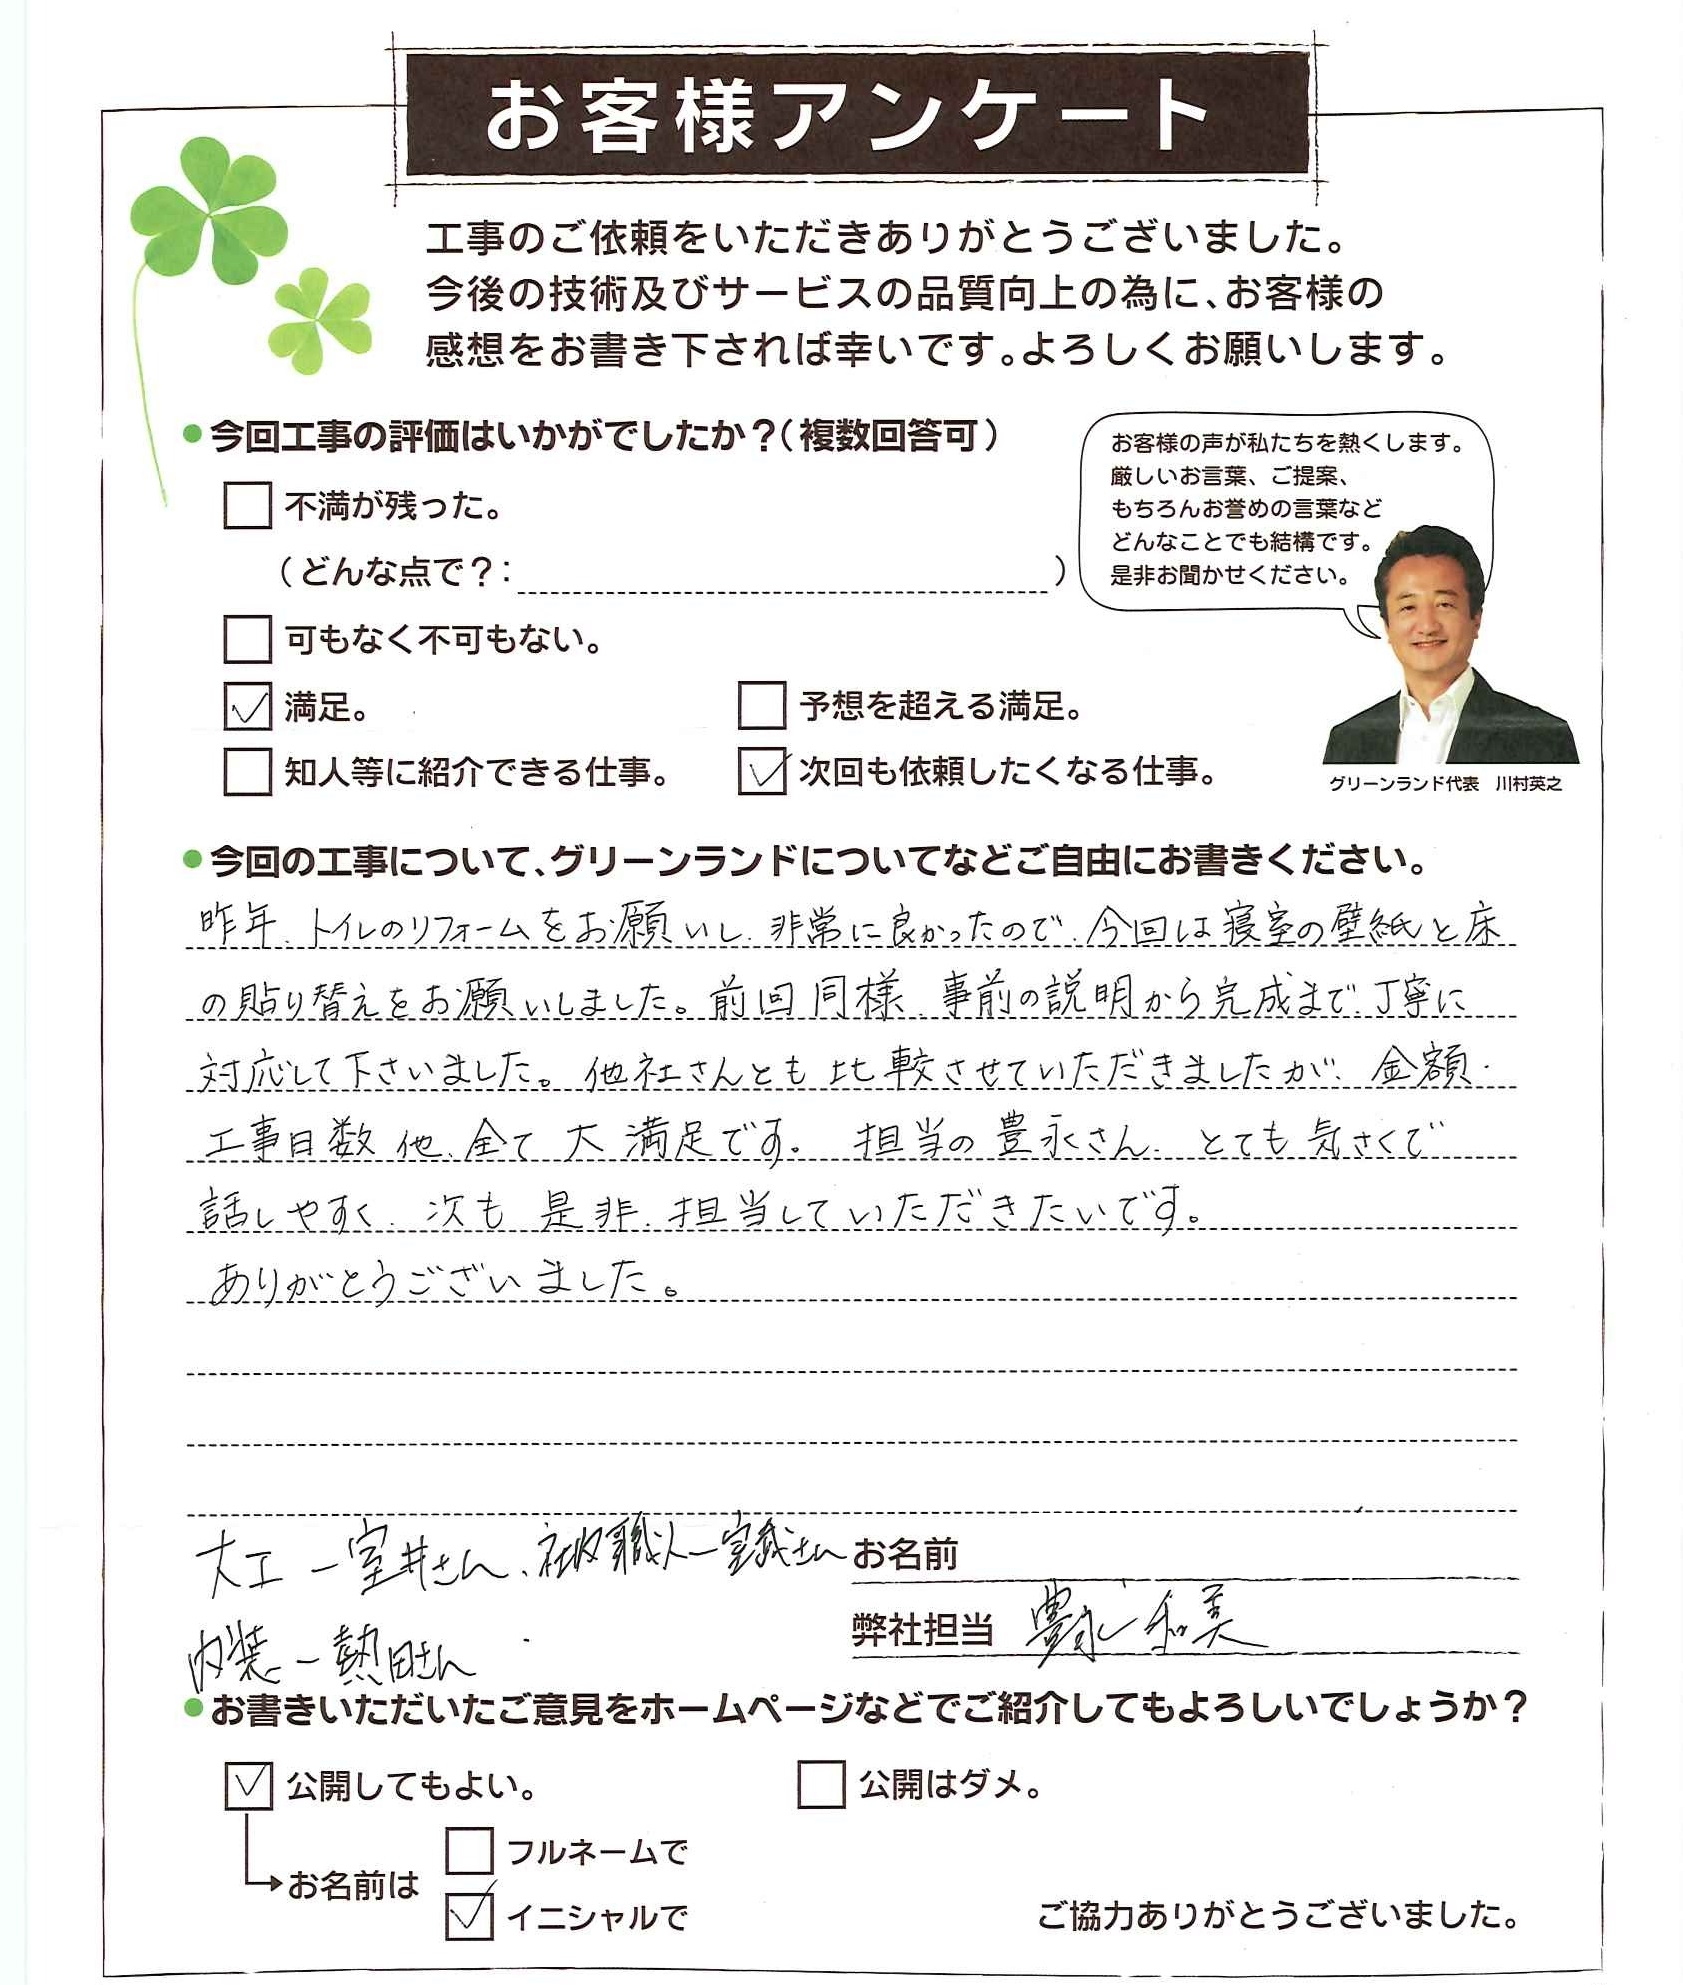 お客様アンケート
工事のご依頼をいただきありがとうございました。
今後の技術及びサービスの品質向上の為に、お客様の
感想をお書き下されば幸いです。よろしくお願いします。
●今回工事の評価はいかがでしたか？（複数回答可）
不満が残った。
（どんな点で？：　）
可もなく不可もない。
満足。
予想を超える満足。
知人等に紹介できる仕事。
次回も依頼したくなる仕事。
お客様の声が私たちを熱くします。
厳しいお言葉、ご提案、
もちろんお誉めの言葉など
どんなことでも結構です。
是非お聞かせください。
グリーンランド代表　川村英之
●今回の工事について、グリーンランドについてなどご自由にお書きください。
昨年、トイレのリフォームをお願いし、非常に良かったので、今回は寝室の壁紙と床
の貼り替えをお願いしました。前回同様、事前の説明から完成まで、丁寧に
対応して下さいました。他社さんとも比較させていただきましたが、金額・
工事日数他、全て大満足です。担当の豊永さん、とても気さくで
話しやすく、次も是非、担当していただきたいです。
ありがとうございました。
大工ー室井さん、職人ーさん
内装ー熱田さん
お名前
弊社担当 豊永 和美
●お書きいただいたご意見をホームページなどでご紹介してもよろしいでしょうか？
公開してもよい。
公開はダメ。
お名前は
フルネームで
イニシャルで
ご協力ありがとうございました。